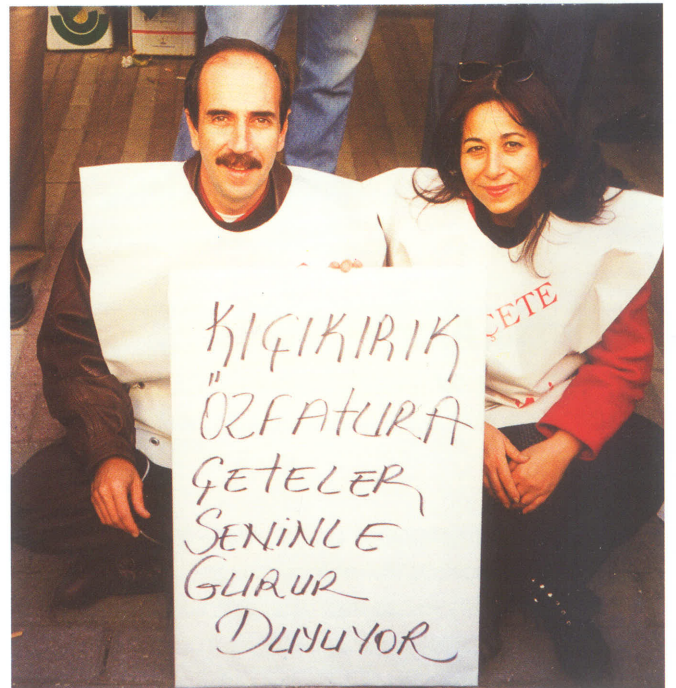 KIÇIKIRIK
ÖZFATURA
ÇETELER
SENİNLE
GURUR
DUYUYOR
ÇETE